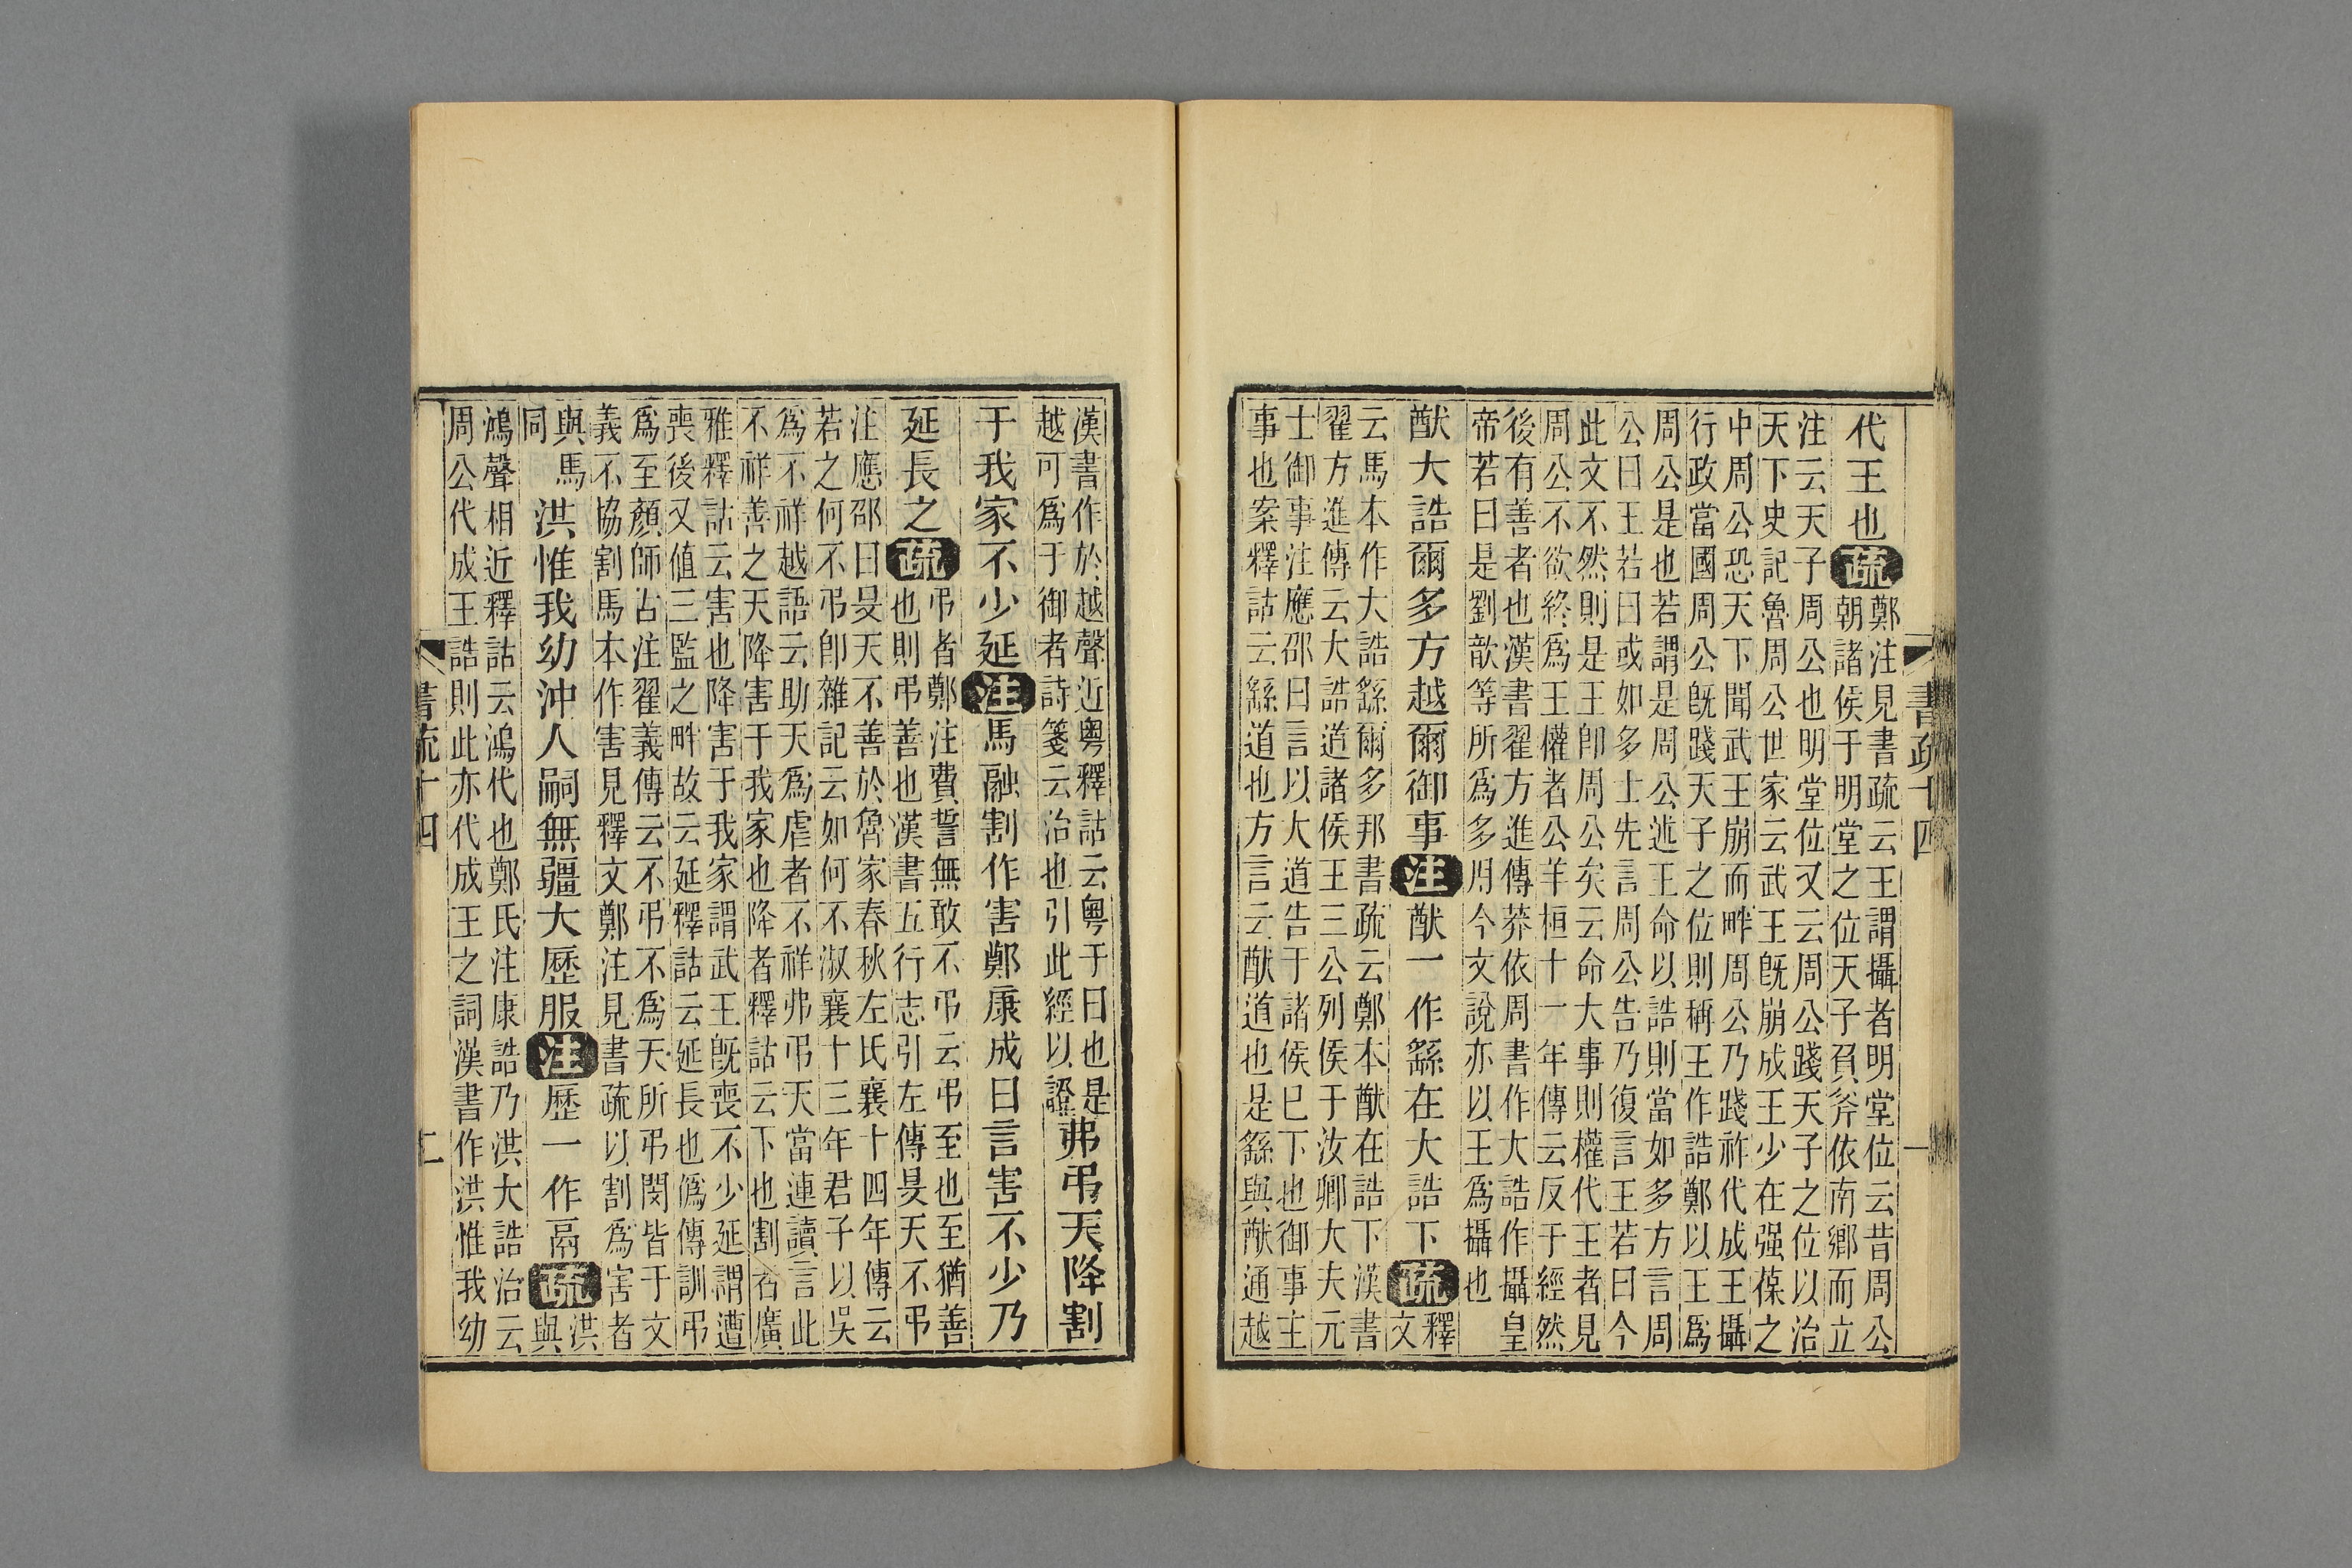 書疏十四
一
代王也疏
鄭注見書疏云王謂攝者明堂位云昔周公
朝諸侯于明堂之位天子負斧依南鄉而立
注云天子周公也明堂位又云周公踐天子之位以治
天下史記魯周公世家云武王既崩成王少在强葆之
中周公恐天下聞武王崩而畔周公乃踐祚代成王攝
行政當國周公既踐天子之位則稱王作誥鄭以王爲
周公是也若謂是周公述王命以誥則當如多方言周
公曰王若曰或如多士先言周公告乃復言王若曰今
此文不然則是王卽周公矣云命大事則權代王者見
周公不欲終爲王權者公羊桓十一年傳云反于經然
後有善者也漢書翟方進傳莽依周書作大誥作攝皇
帝若曰是劉歆等所爲多用今文說亦以王爲攝也
猷大誥爾多方越爾御事注猷一作繇在大誥下疏
釋
文
云馬本作大誥繇爾多邦書疏云鄭本猷在誥下漢書
翟方進傳云大誥道諸侯王三公列侯于汝卿大夫元
士御事注應邵曰言以大道告于諸侯已下也御事主
事也案釋詁云繇道也方言云猷道也是繇與猷通越
漢書作於越聲近粵釋詁云粵于曰也是
越可爲于御者詩箋云治也引此經以證
弗弔天降割
于我家不少延注馬融割作害鄭康成曰言害不少乃
延長之疏
弔者鄭注費誓無敢不弔云弔至也至猶善
也則弔善也漢書五行志引左傳旻天不弔
注應邵曰旻天不善於魯家春秋左氏襄十四年傳云
若之何不弔卽雜記云如何不淑襄十三年君子以吳
爲不祥越語云助天爲虐者不祥弗弔天當連讀言此
不祥善之天降害于我家也降者釋詁云下也割者廣
雅釋詁云害也降害于我家謂武王既喪不少延謂遭
喪後又值三監之畔故云延釋詁云延長也僞傳訓弔
爲至顏師古注翟義傳云不弔不爲天所弔閔皆于文
義不協割馬本作害見釋文鄭注見書疏以割爲害者
與馬
同
洪惟我幼沖人嗣無疆大歷服注歷一作鬲疏
洪
與
鴻聲相近釋詁云鴻代也鄭氏注康誥乃洪大誥治云
周公代成王誥則此亦代成王之詞漢書作洪惟我幼
書疏十四
二